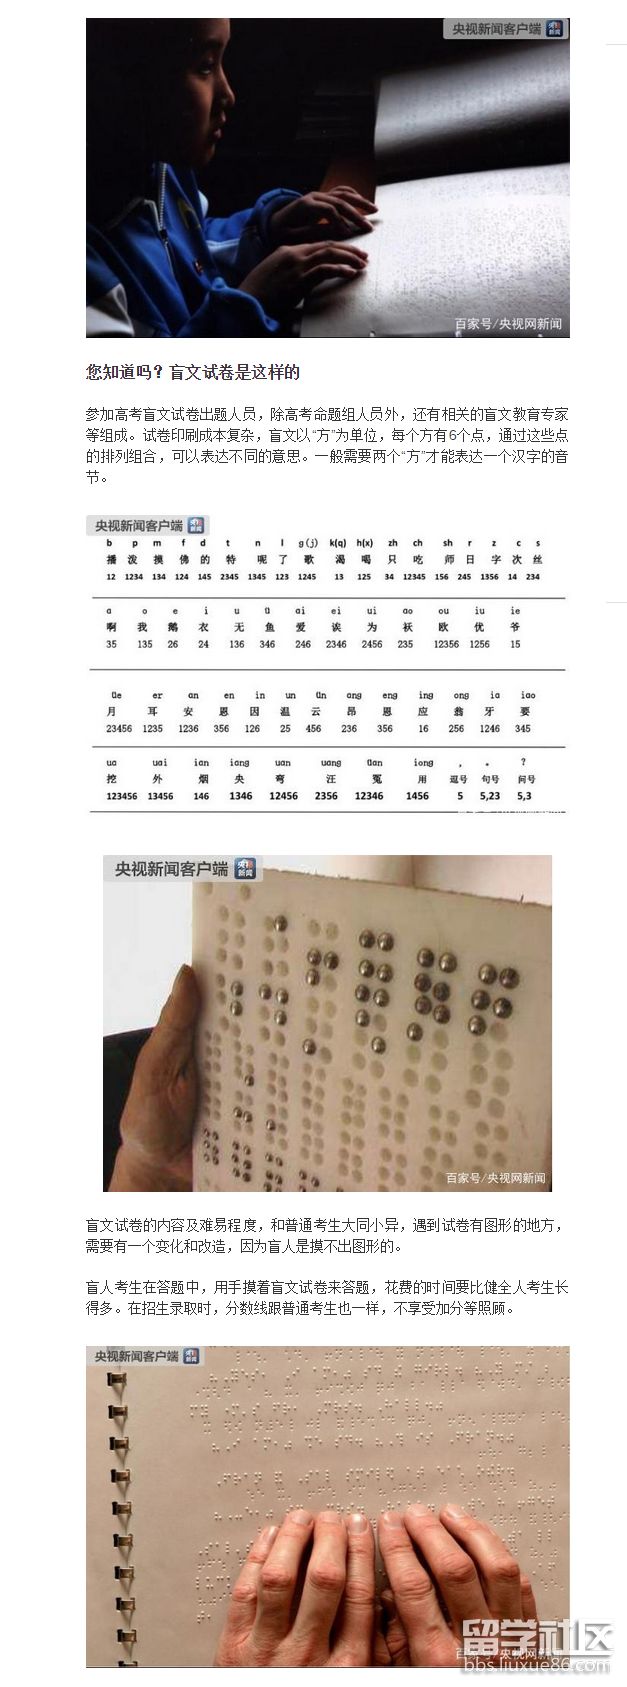 央视新闻客户端
百家号/央视网新闻
您知道吗？盲文试卷是这样的
参加高考盲文试卷出题人员，除高考命题组人员外，还有相关的盲文教育专家
等组成。试卷印刷成本复杂，盲文以“方”为单位，每个方有6个点，通过这些点
的排列组合，可以表达不同的意思。一般需要两个“方”才能表达一个汉字的音
节。
央视新闻客户端
b p m f d t n l g(j) k(q) h(x) zh ch sh r z c s
播 泼 摸 佛 的 特 呢 了 歌 渴 喝 只 吃 师 日 字 次 丝
12 1234 134 124 145 2345 1345 123 1245 13 125 34 12345 156 245 1356 14 234
a o e i u ü ai ei ui ao ou iu ie
啊 我 鹅 衣 无 鱼 爱 诶 为 袄 欧 优 爷
35 135 26 24 136 346 246 2346 2456 235 12356 1256 15
üe er an en in un ün ang eng ing ong ia iao
月 耳 安 恩 因 温 云 昂 恩 应 翁 牙 要
23456 1235 1236 356 126 25 456 236 356 16 256 1246 345
ua uai ian iang uan uang üan iong , 。 ?
挖 外 烟 央 弯 汪 冤 用 逗号 句号 问号
123456 13456 146 1346 12456 2356 12346 1456 5 5,23 5,3
央视新闻客户端
百家号/央视网新闻
盲文试卷的内容及难易程度，和普通考生大同小异，遇到试卷有图形的地方，
需要有一个变化和改造，因为盲人是摸不出图形的。
盲人考生在答题中，用手摸着盲文试卷来答题，花费的时间要比健全人考生长
得多。在招生录取时，分数线跟普通考生也一样，不享受加分等照顾。
央视新闻客户端
百家号/央视网新闻
留学社区
bbs.liuxue86.com